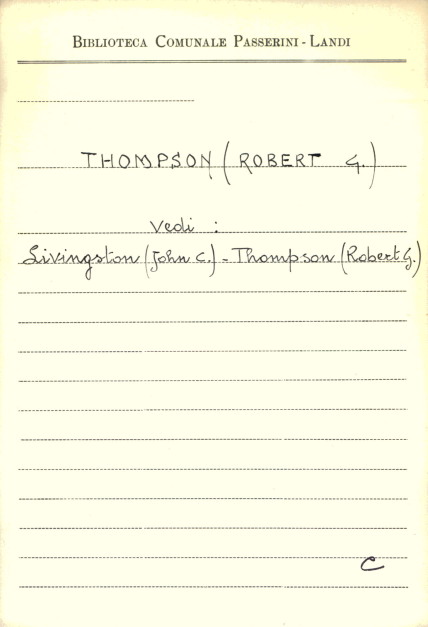 BIBLIOTECA COMUNALE PASSERINI - LANDI
THOMPSON (ROBERT G.)
Vedi :
Livingston (John C.) - Thompson (Robert G.)
C